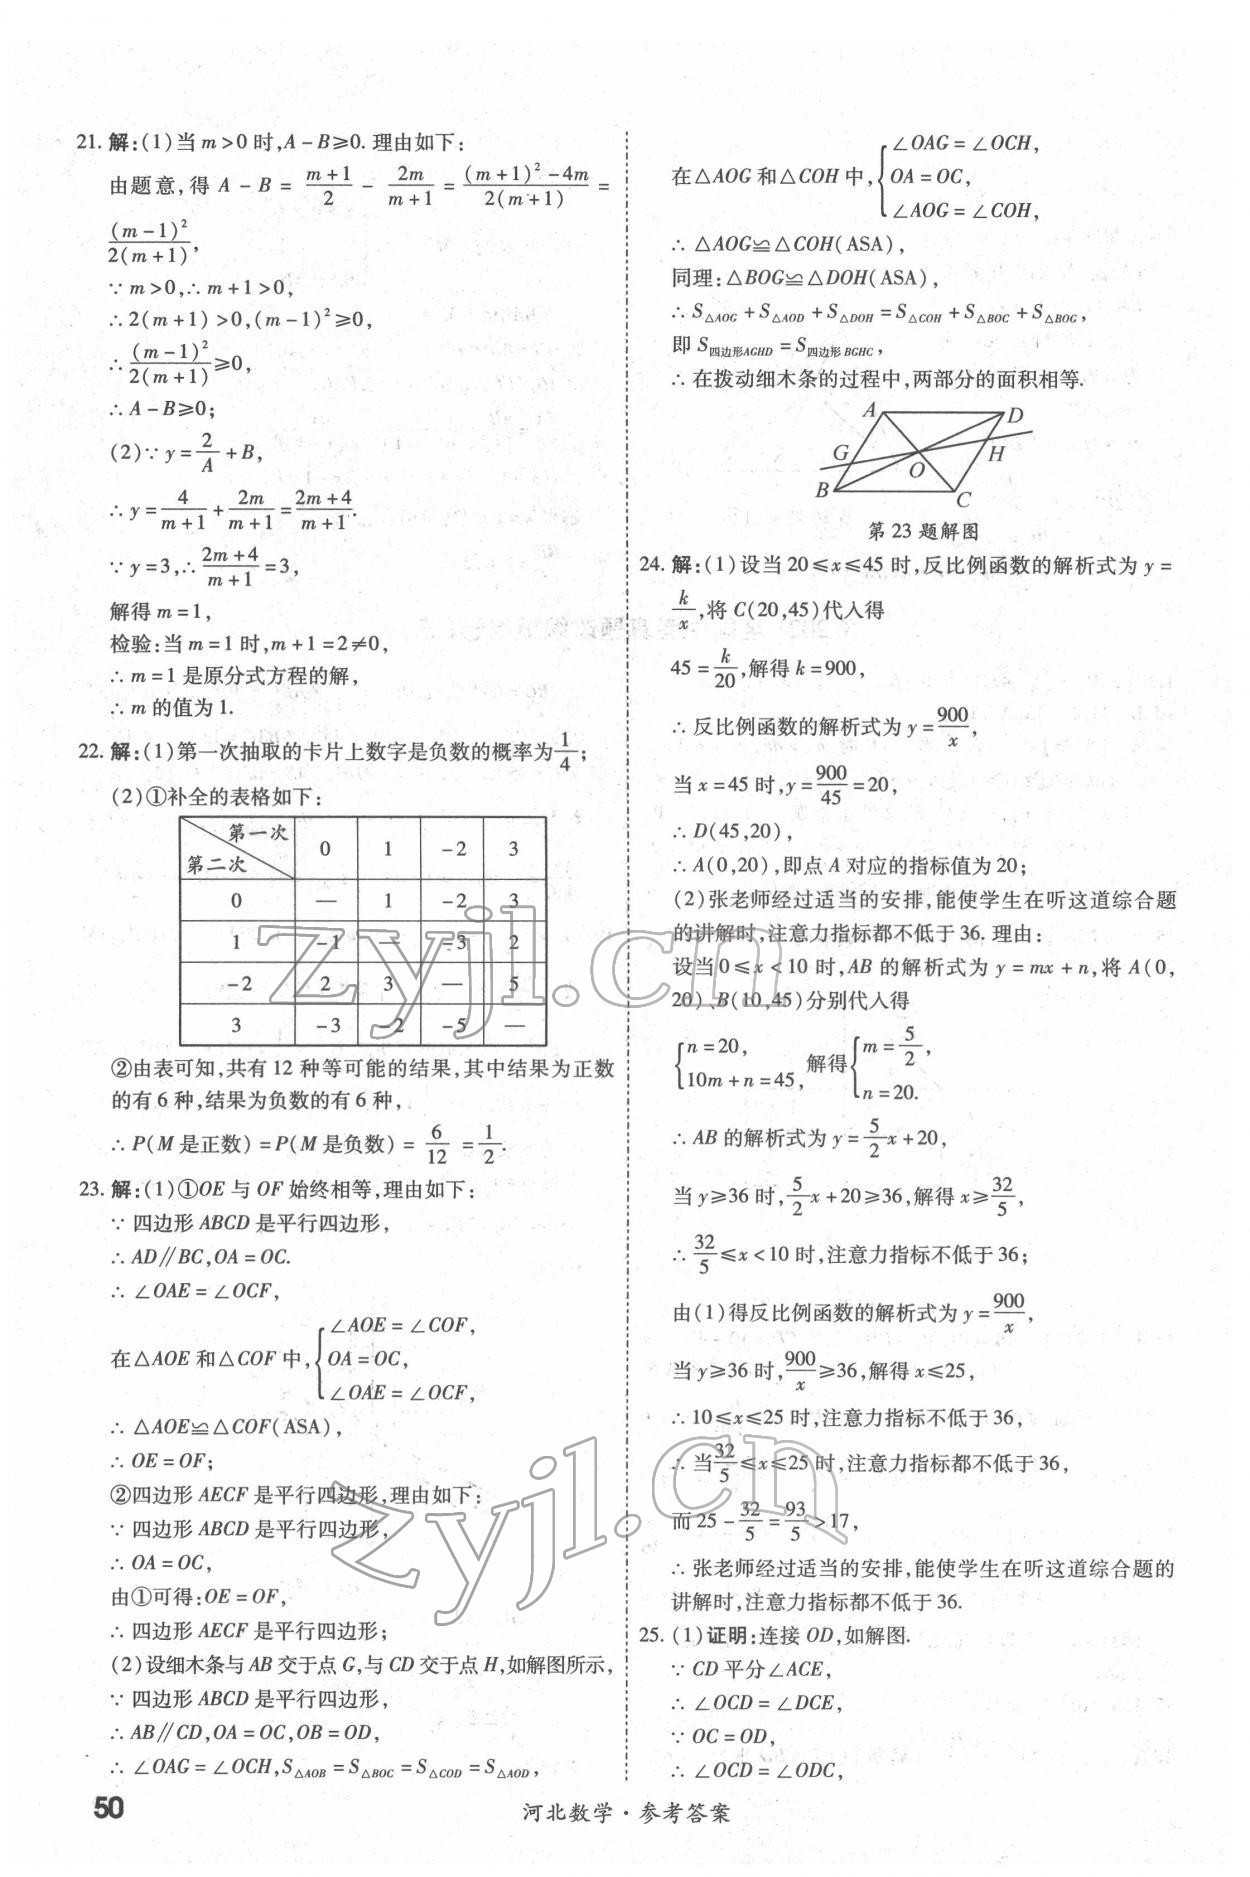 21. 解:(1)当 m>0 时,A-B≥0. 理由如下:
由题意,得 A-B = (m+1)/2 - 2m/(m+1) = ((m+1)²-4m)/(2(m+1)) =
(m-1)²/(2(m+1)),
∵ m>0,∴ m+1>0,
∴ 2(m+1)>0,(m-1)²≥0,
∴ (m-1)²/(2(m+1))≥0,
∴ A-B≥0;
(2)∵ y=2/A+B,
∴ y=4/(m+1)+2m/(m+1)=(2m+4)/(m+1).
∵ y=3,∴ (2m+4)/(m+1)=3,
解得 m=1,
检验:当 m=1 时,m+1=2≠0,
∴ m=1 是原分式方程的解,
∴ m 的值为 1.
22. 解:(1)第一次抽取的卡片上数字是负数的概率为1/4;
(2)①补全的表格如下:
第一次 第二次 0 1 -2 3
0 — 1 -2 3
1 -1 — -3 2
-2 2 3 — 5
3 -3 -2 -5 —
②由表可知,共有 12 种等可能的结果,其中结果为正数
的有 6 种,结果为负数的有 6 种,
∴ P(M 是正数)=P(M 是负数)= 6/12 = 1/2.
23. 解:(1)①OE 与 OF 始终相等,理由如下:
∵ 四边形 ABCD 是平行四边形,
∴ AD∥BC,OA=OC.
∴ ∠OAE=∠OCF,
在△AOE 和△COF 中,{∠AOE=∠COF,
OA=OC,
∠OAE=∠OCF,
∴ △AOE≌△COF(ASA),
∴ OE=OF;
②四边形 AECF 是平行四边形,理由如下:
∵ 四边形 ABCD 是平行四边形,
∴ OA=OC,
由①可得:OE=OF,
∴ 四边形 AECF 是平行四边形;
(2)设细木条与 AB 交于点 G,与 CD 交于点 H,如解图所示,
∵ 四边形 ABCD 是平行四边形,
∴ AB∥CD,OA=OC,OB=OD,
∴ ∠OAG=∠OCH,S△AOB=S△BOC=S△COD=S△AOD,
在△AOG 和△COH 中,{∠OAG=∠OCH,
OA=OC,
∠AOG=∠COH,
∴ △AOG≌△COH(ASA),
同理:△BOG≌△DOH(ASA),
∴ S△AOG+S△AOD+S△DOH=S△COH+S△BOC+S△BOG,
即 S四边形AGHD=S四边形BGHC,
∴ 在拨动细木条的过程中,两部分的面积相等.
A D
G O H
B C
第 23 题解图
24. 解:(1)设当 20≤x≤45 时,反比例函数的解析式为 y=
k/x,将 C(20,45)代入得
45=k/20,解得 k=900,
∴ 反比例函数的解析式为 y=900/x,
当 x=45 时,y=900/45=20,
∴ D(45,20),
∴ A(0,20),即点 A 对应的指标值为 20;
(2)张老师经过适当的安排,能使学生在听这道综合题
的讲解时,注意力指标都不低于 36. 理由:
设当0≤x<10 时,AB 的解析式为 y=mx+n,将 A(0,
20)、B(10,45)分别代入得
{n=20, 10m+n=45, 解得{m=5/2, n=20.
∴ AB 的解析式为 y=5/2x+20,
当 y≥36 时,5/2x+20≥36,解得 x≥32/5,
∴ 32/5≤x<10 时,注意力指标不低于 36;
由(1)得反比例函数的解析式为 y=900/x,
当 y≥36 时,900/x≥36,解得 x≤25,
∴ 10≤x≤25 时,注意力指标不低于 36,
∴ 当32/5≤x≤25 时,注意力指标都不低于 36,
而 25-32/5=93/5>17,
∴ 张老师经过适当的安排,能使学生在听这道综合题的
讲解时,注意力指标都不低于 36.
25. (1)证明:连接 OD,如解图.
∵ CD 平分∠ACE,
∴ ∠OCD=∠DCE,
∵ OC=OD,
∴ ∠OCD=∠ODC,
50
河北数学·参考答案
zyjl.cn
zyjl.cn